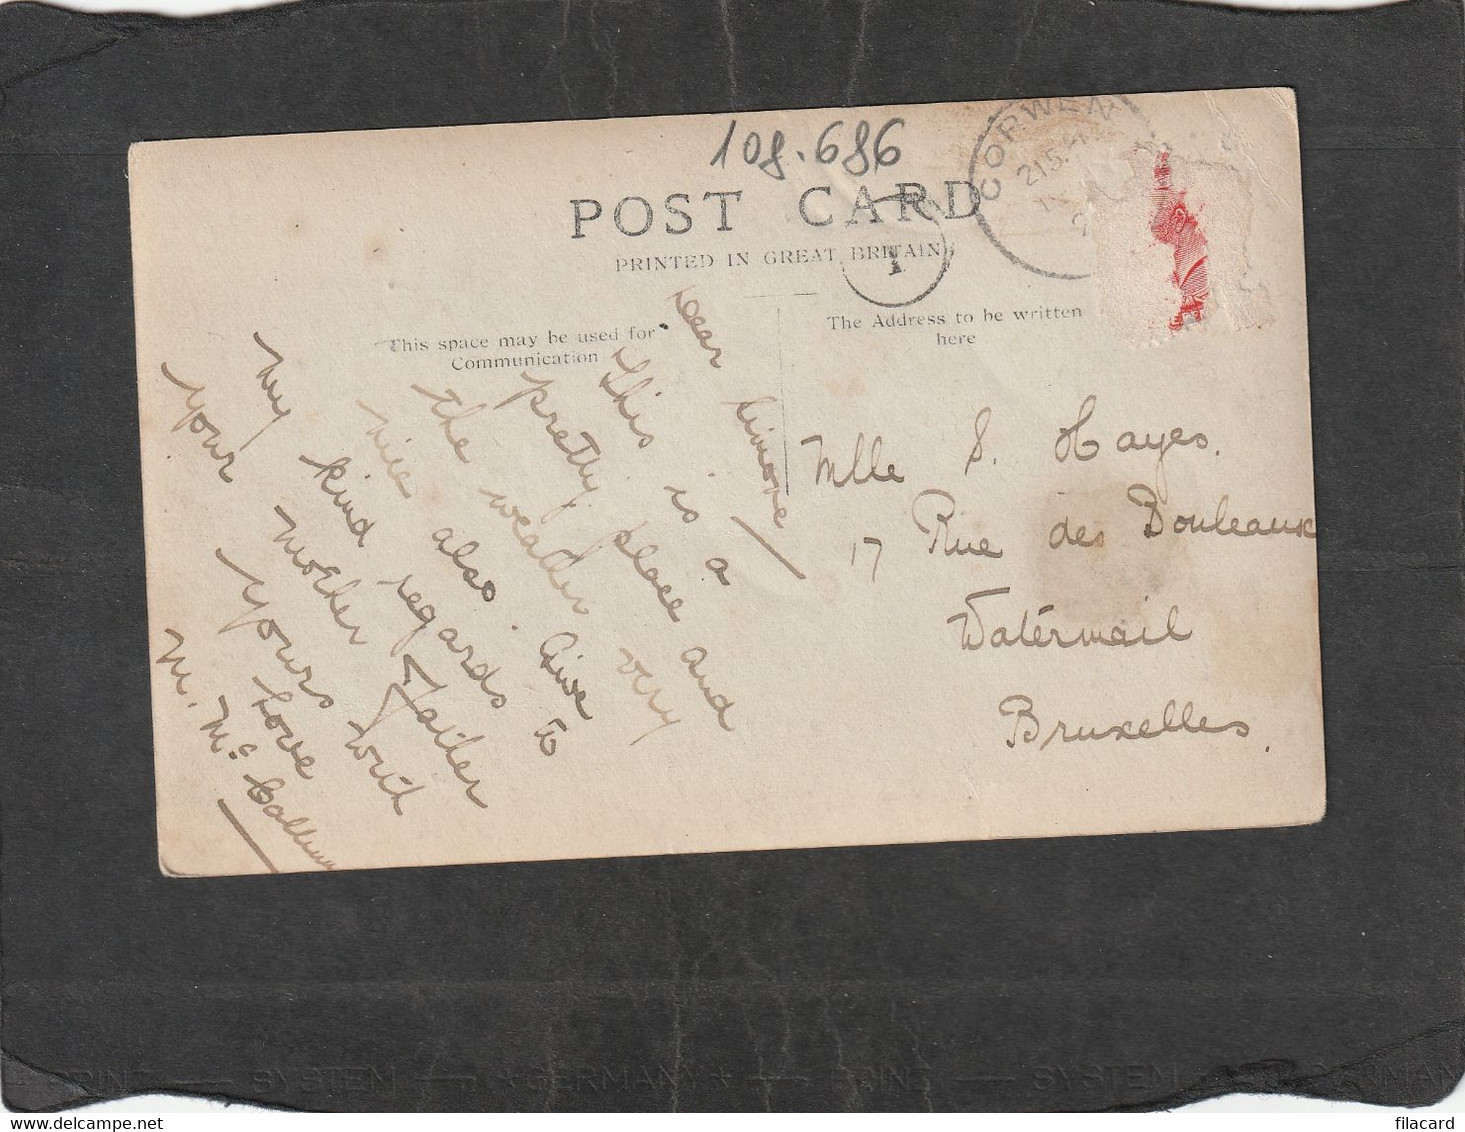 108.686
POST CARD
PRINTED IN GREAT BRITAIN
CORWEN
T
This space may be used for
Communication
The Address to be written
here
Dear Simone
This is a
pretty place and
the weather very
nice also. Give to
my kind regards
your Mother & Father
Yours with
Love
M. McCallum
Mlle S. Hayes.
17 Rue des Bouleaux
Watermail
Bruxelles.
PRINZ — SYSTEM — * GERMANY * — PRINZ — SYSTEM
filacard